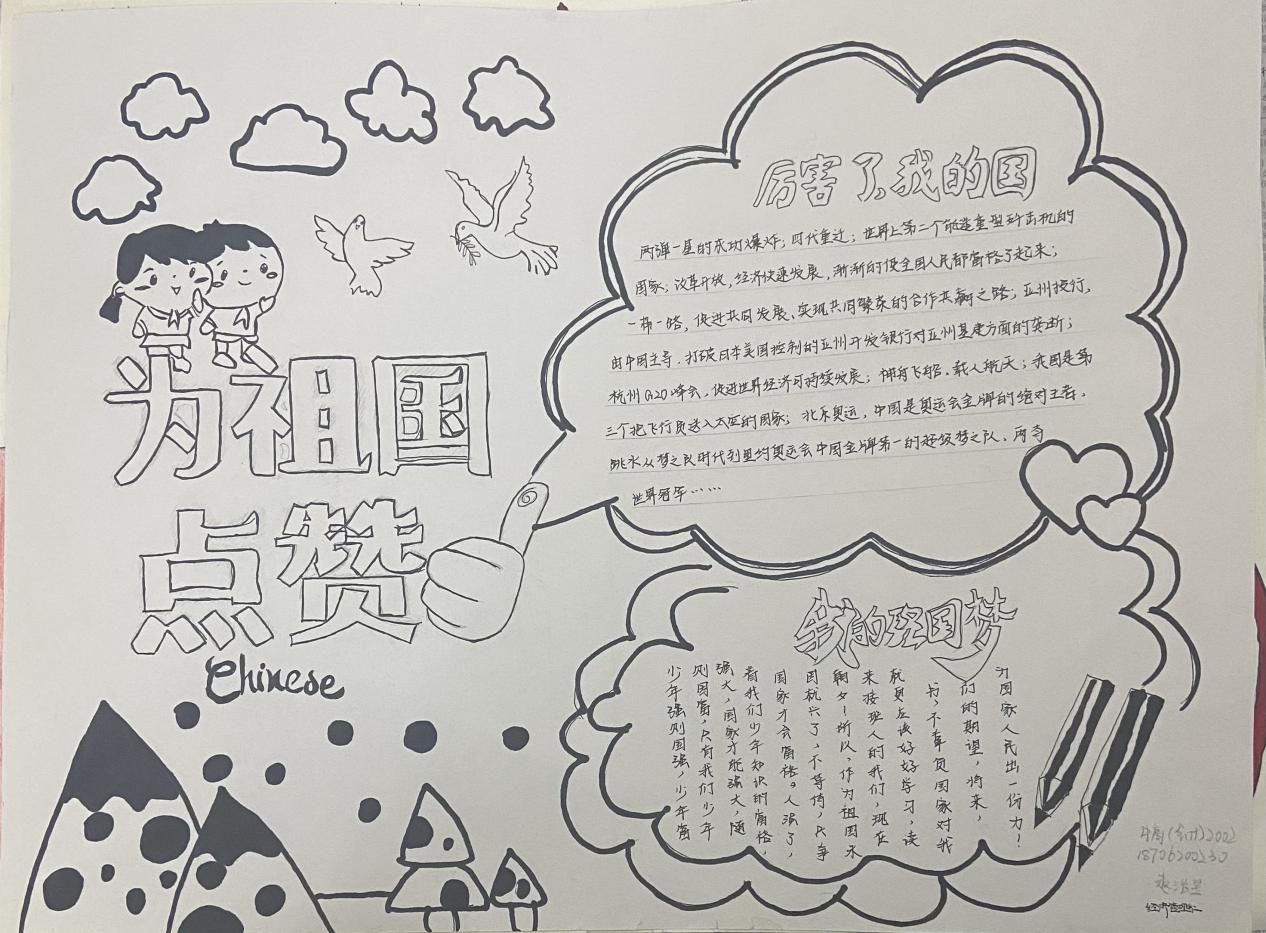 为祖国
点赞
Chinese
厉害了,我的国
两弹一星的成功爆炸;四代重过;世界上第二个能造重型歼击机的
国家;改革开放,经济快速发展,渐渐的使全国人民都富裕了起来;
一带一路,促进共同发展、实现共同繁荣的合作共赢之路;亚州投行,
由中国主导.打破日本美国控制的亚州开发银行对亚州基建方面的垄断;
杭州G20峰会,促进世界经济可持续发展;神舟飞船.载人航天;我国是第
三个把飞行员送入太空的国家;北京奥运,中国是奥运会金牌的绝对王者.
跳水从梦之队时代到里约奥运会中国金牌第一的超级梦之队.两夺
世界冠军……
我的强国梦
少年强则国强,少年富
则国富,只有我们少年
强大,国家才能强大,随
着我们少年知识的富裕,
国家才会富裕。人强了,
国就兴了,不等待,只争
朝夕!所以,作为祖国未
来接班人的我们,现在
就更应该好好学习,读
书,不辜负国家对我
们的期望,将来,
为国家人民出一份力!
(会计)2002